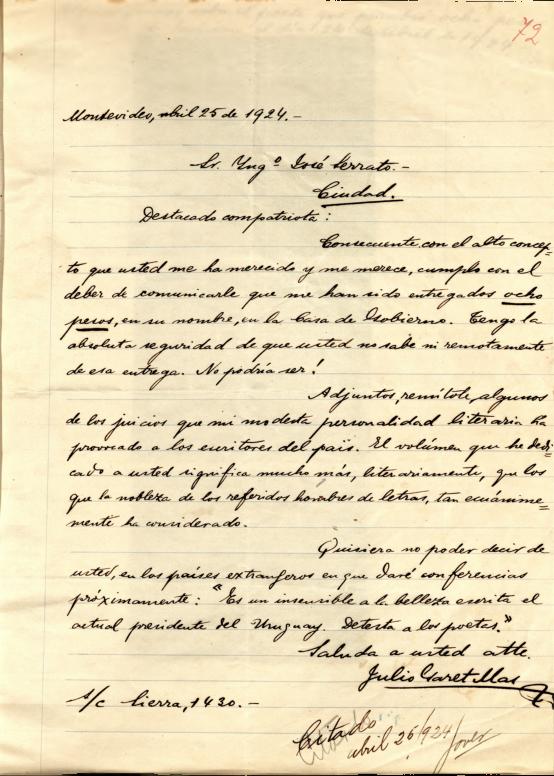 72
Montevideo, abril 25 de 1924.-
Sr. Yngº José Serrato.-
Ciudad.
Destacado compatriota:
Consecuente con el alto concep=
to que usted me ha merecido y me merece, cumplo con el
deber de comunicarle que me han sido entregados ocho
pesos, en su nombre, en la Casa de Gobierno. Tengo la
absoluta seguridad de que usted no sabe ni remotamente
de esa entrega. No podría ser!
Adjuntos, remítole, algunos
de los juicios que mi modesta personalidad literaria ha
provocado a los escritores del país. El volúmen que he dedi=
cado a usted significa mucho más, literariamente, que los
que la nobleza de los referidos hombres de letras, tan ecuánime=
mente ha considerado.
Quisiera no poder decir de
usted, en los países extrangeros en que daré conferencias
próximamente: "Es un insensible a la belleza escrita el
actual presidente del Uruguay. Detesta a los poetas."
Saluda a usted atte.
Julio Garet Mas
S/c Sierra, 1430.-
Citado
abril 26/924